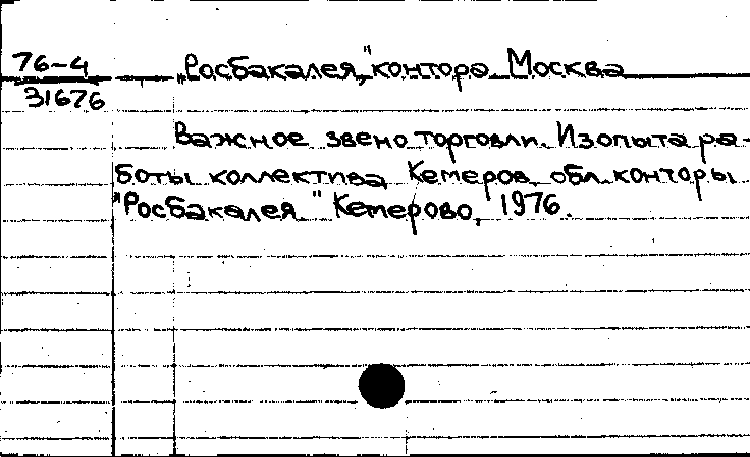 76-4
„Росбакалея," контора Москва
31676
Важное звено торговли. Из опыта ра-
боты коллектива Кемеров. обл. конторы
"Росбакалея" Кемерово, 1976.